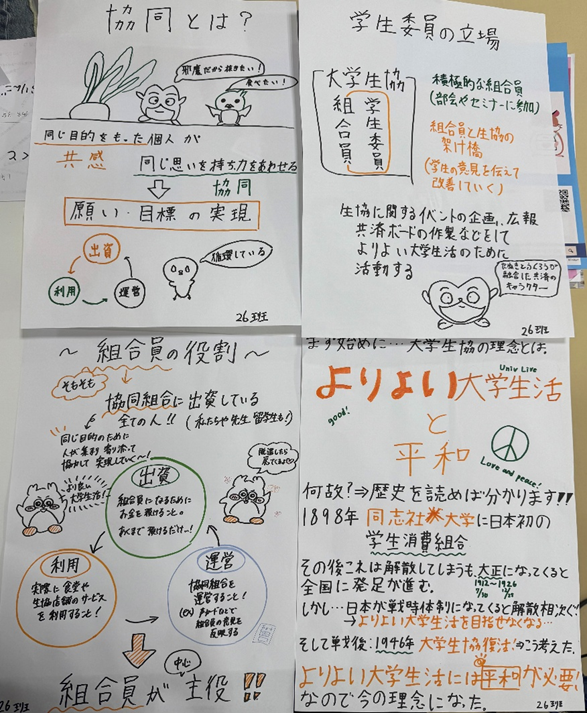 協同とは?
邪魔だから抜きたい!
食べたい!
同じ目的をもった個人が
共感
同じ思いを持ち力をあわせる
協同
願い・目標の実現
出資
利用
運営
循環している
26班
学生委員の立場
大学生協
組合員
学生委員
積極的な組合員
(部会やセミナーに参加)
組合員と生協の
架け橋
(学生の意見を伝えて
改善していく)
生協に関するイベントの企画、広報
共済ボードの作製などをして
よりよい大学生活のために
活動する
たぬきとふくろうが
融合した共済の
キャラクター
26班
~組合員の役割~
そもそも
協同組合に出資している
全ての人!!(私たちや先生、留学生も!)
同じ目的のために
人が集まり寄り添って
協力して実現していく~!
より良い
大学生活!
出資
組合員になるために
お金を預けること。
あくまで預けるだけー!
利用
実際に食堂や
生協店舗のサービス
を利用すること!
運営
協同組合を
運営すること!
組合員の意見を
反映する
中心
組合員が主役!!
26班
まず始めに…大学生協の理念とは、
Univ Live
よりよい大学生活
good!
と
平和
Love and peace!
何故?⇒歴史を読めば分かります!!
1898年 同志社大学に日本初の
学生消費組合
その後これは解散してしまうも、大正になってくると
1912~1926
全国に発足が進む。
しかし…日本が戦時体制になってくると解散相次ぐ
→よりよい大学生活を目指せなくなる…
そして戦後:1946年 大学生協復活!のこう考えた。
よりよい大学生活には平和が必要!
なので今の理念になった。
26班